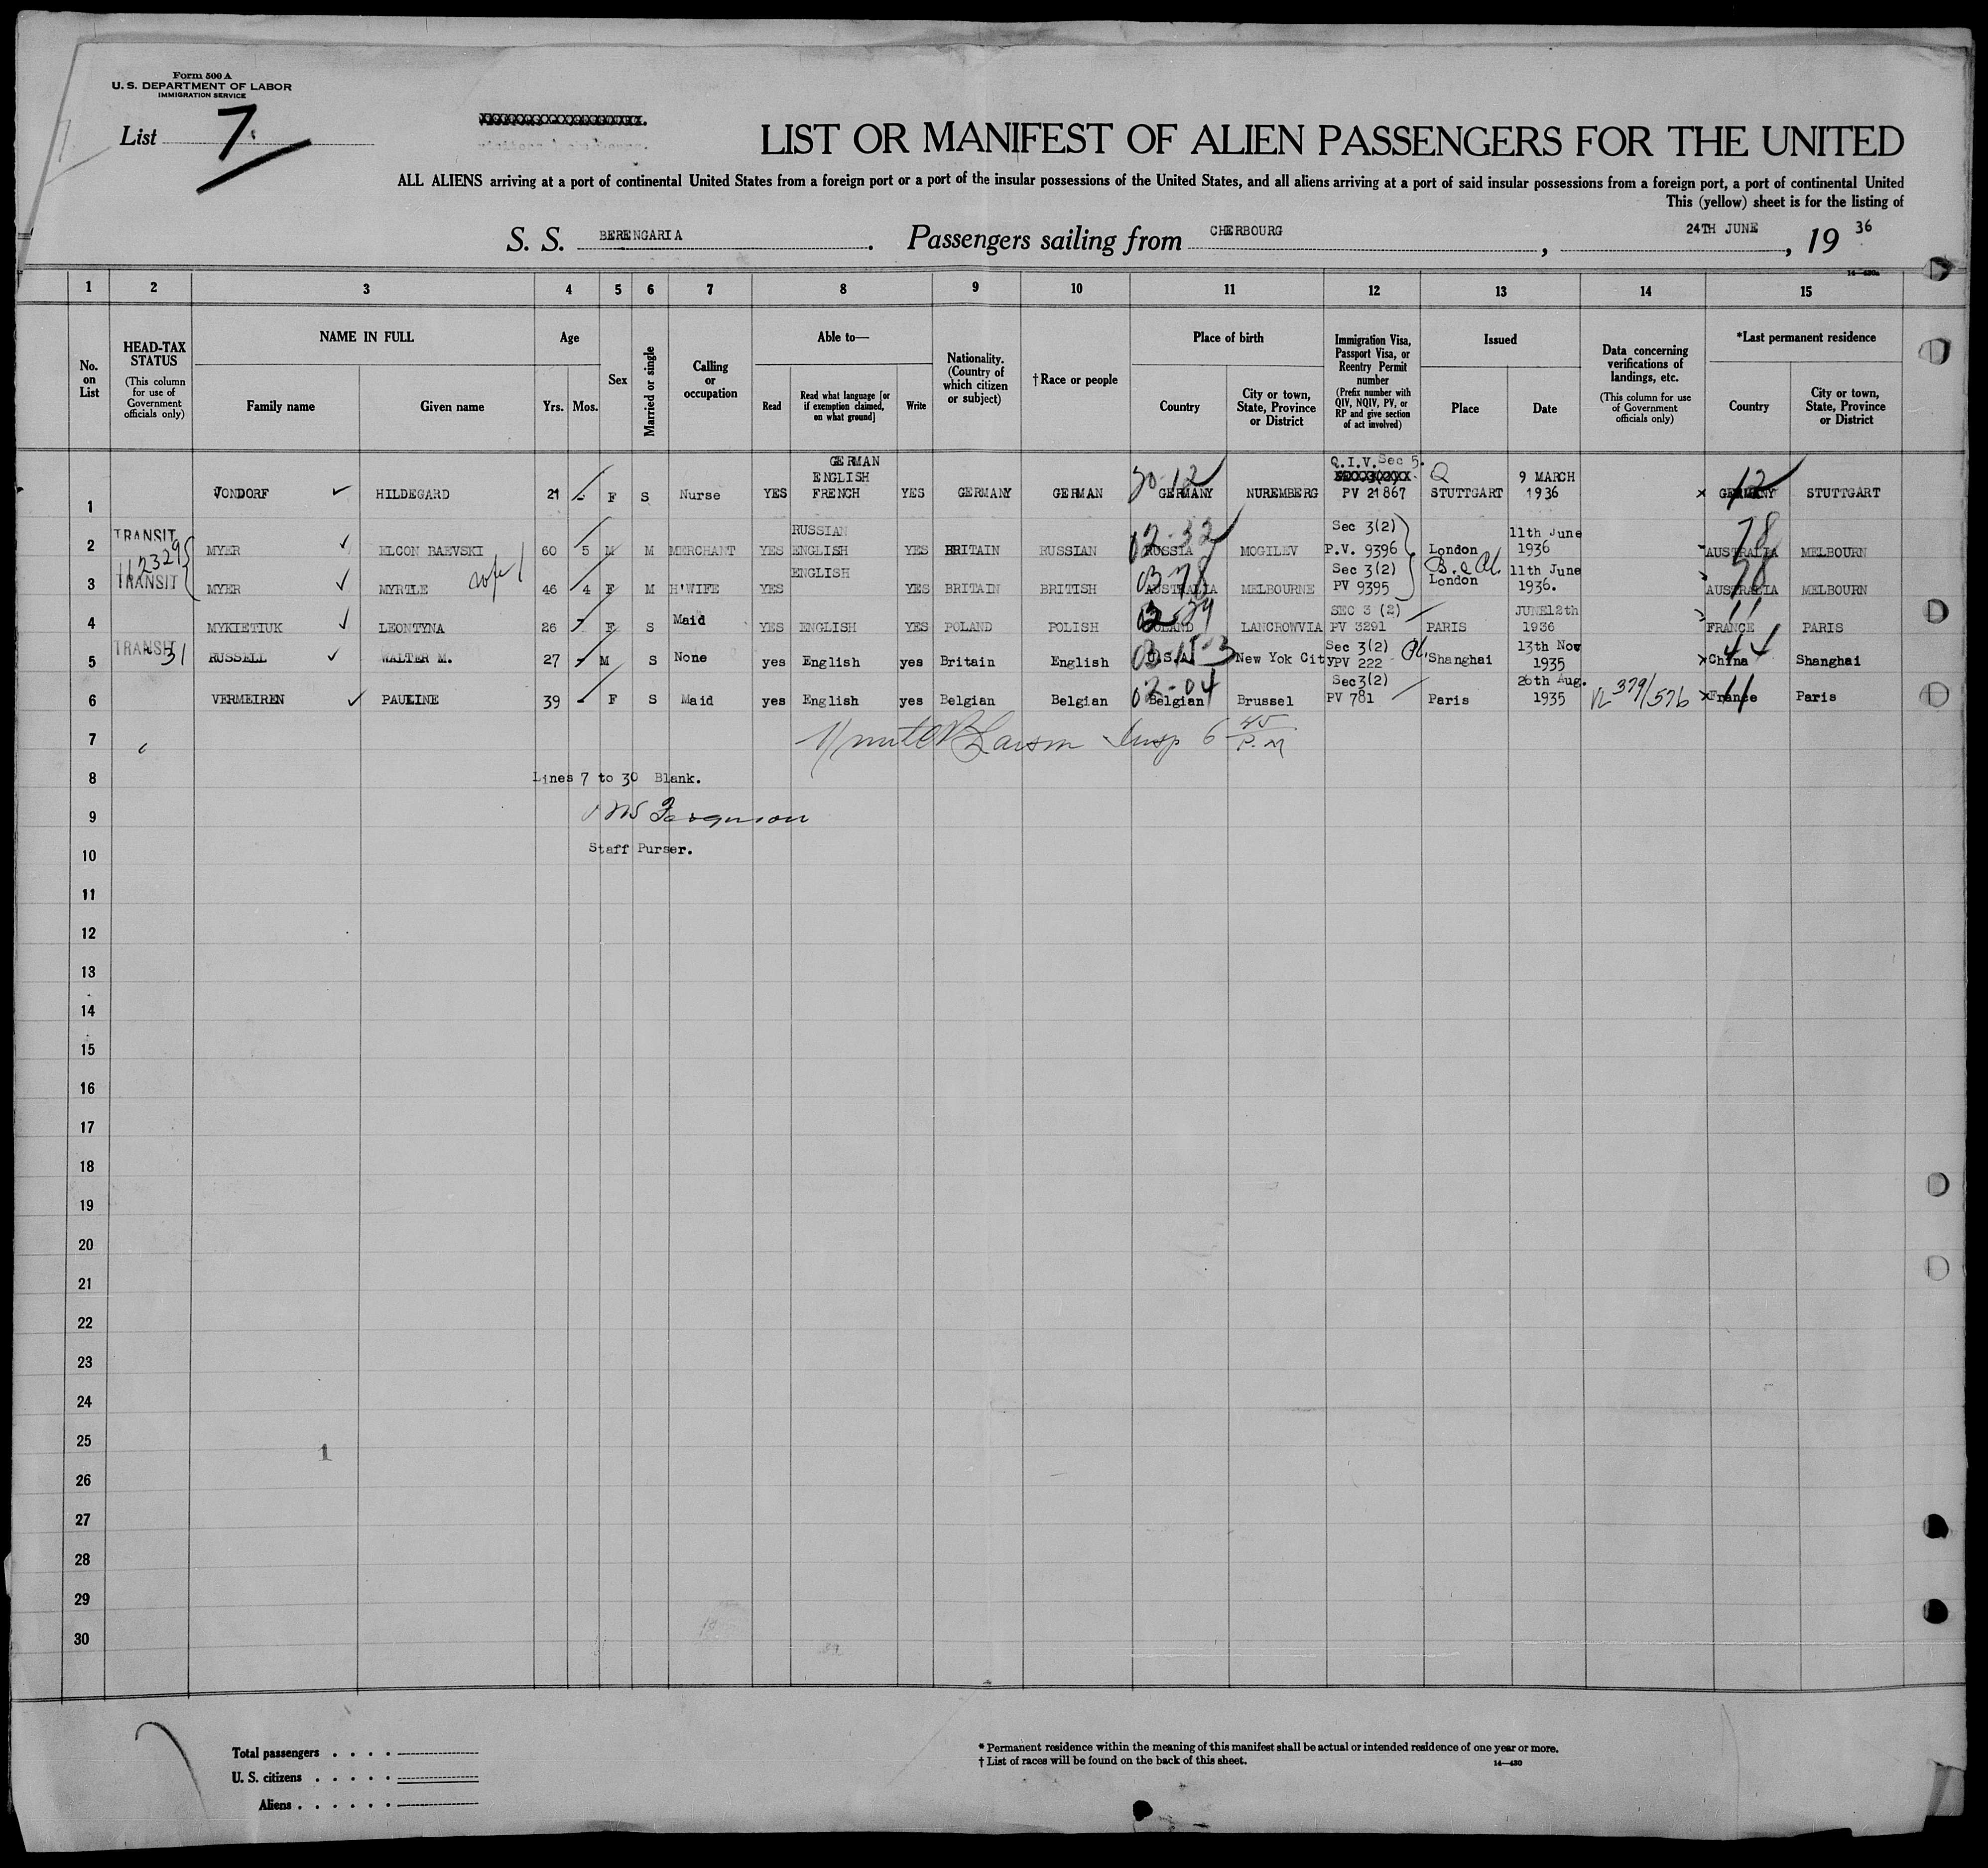 Form 500 A
U. S. DEPARTMENT OF LABOR
IMMIGRATION SERVICE
List 7
LIST OR MANIFEST OF ALIEN PASSENGERS FOR THE UNITED
ALL ALIENS arriving at a port of continental United States from a foreign port or a port of the insular possessions of the United States, and all aliens arriving at a port of said insular possessions from a foreign port, a port of continental United
This (yellow) sheet is for the listing of
S. S. BERENGARIA. Passengers sailing from CHERBOURG, 24TH JUNE, 19 36
14—430a
1 2 3 4 5 6 7 8 9 10 11 12 13 14 15
No. on List
HEAD-TAX STATUS (This column for use of Government officials only)
NAME IN FULL Family name Given name
Age Yrs. Mos.
Sex
Married or single
Calling or occupation
Able to— Read Read what language [or if exemption claimed, on what ground] Write
Nationality. (Country of which citizen or subject)
†Race or people
Place of birth Country City or town, State, Province or District
Immigration Visa, Passport Visa, or Reentry Permit number (Prefix number with QIV, NQIV, PV, or RP and give section of act involved)
Issued Place Date
Data concerning verifications of landings, etc. (This column for use of Government officials only)
*Last permanent residence Country City or town, State, Province or District
GERMAN Q.I.V. Sec 5.
ENGLISH 30-12 Q 9 MARCH 12
1 VONDORF HILDEGARD 21 - F S Nurse YES FRENCH YES GERMANY GERMAN GERMANY NUREMBERG PV 21867 STUTTGART 1936 x GERMANY STUTTGART
TRANSIT RUSSIAN 02-32 Sec 3(2) 11th June 78
2 MYER ELCON BAEVSKI 60 5 M M MERCHANT YES ENGLISH YES BRITAIN RUSSIAN RUSSIA MOGILEV P.V. 9396 London 1936 AUSTRALIA MELBOURN
112329 ENGLISH 03-78 Sec 3(2) 11th June 78
3 TRANSIT MYER MYRTLE wife 46 4 F M H'WIFE YES YES BRITAIN BRITISH AUSTRALIA MELBOURNE PV 9395 London 1936. AUSTRALIA MELBOURN
SEC 3 (2) JUNE12th 11
4 MYKIETIUK LEONTYNA 26 - F S Maid YES ENGLISH YES POLAND POLISH POLAND LANCROWVIA PV 3291 PARIS 1936 FRANCE PARIS
TRANSIT 31 Sec 3(2) 13th Nov 44
5 RUSSELL WALTER M. 27 - M S None yes English yes Britain English U.S.A. New Yok City PV 222 Shanghai 1935 x China Shanghai
02-04 Sec3(2) 26th Aug. 11
6 VERMEIREN PAULINE 39 - F S Maid yes English yes Belgian Belgian Belgian Brussel PV 781 Paris 1935 VL 379/576 x France Paris
7 Larson Insp 6 45 P.M
8 Lines 7 to 30 Blank.
9 Ferguson
10 Staff Purser.
11
12
13
14
15
16
17
18
19
20
21
22
23
24
25
1
26
27
28
29
30
Total passengers
U. S. citizens
Aliens
* Permanent residence within the meaning of this manifest shall be actual or intended residence of one year or more.
† List of races will be found on the back of this sheet.
14—430